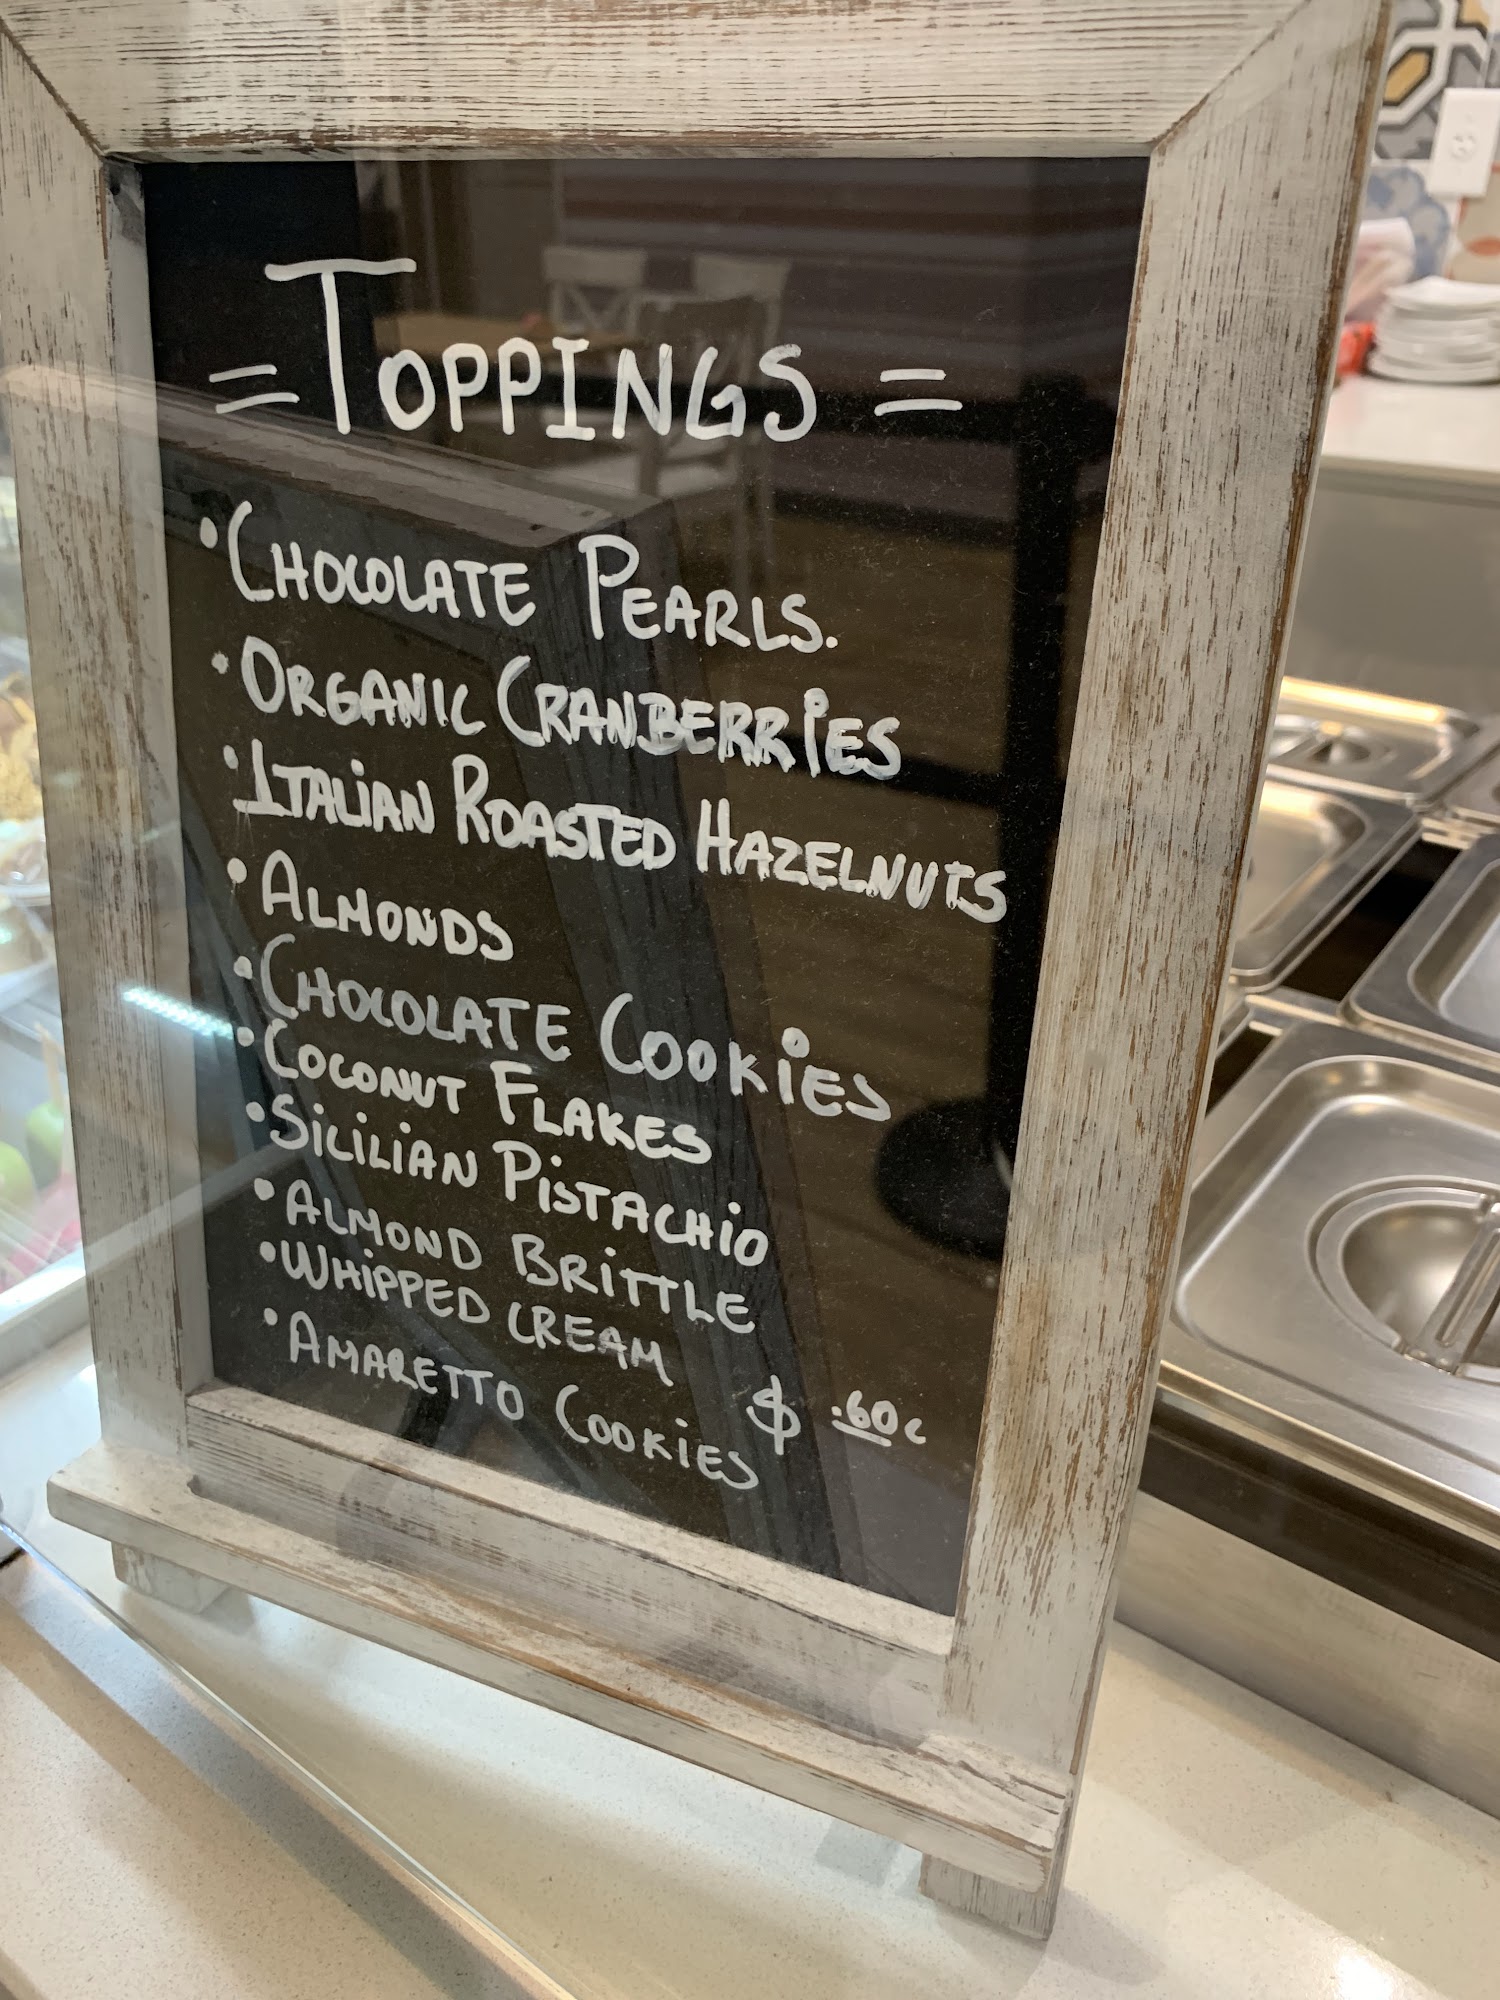 = TOPPINGS =
• CHOCOLATE PEARLS.
• ORGANIC CRANBERRIES
• ITALIAN ROASTED HAZELNUTS
• ALMONDS
• CHOCOLATE COOKIES
• COCONUT FLAKES
• SICILIAN PISTACHIO
• ALMOND BRITTLE
• WHIPPED CREAM
• AMARETTO COOKIES
$ .60c